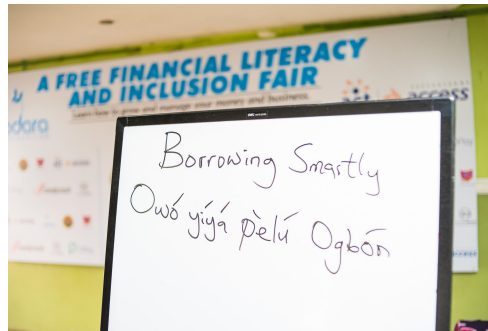 A FREE FINANCIAL LITERACY
AND INCLUSION FAIR
Learn how to grow and manage your money and business.
access
Borrowing Smartly
Owó yíyá pèlú Ogbón